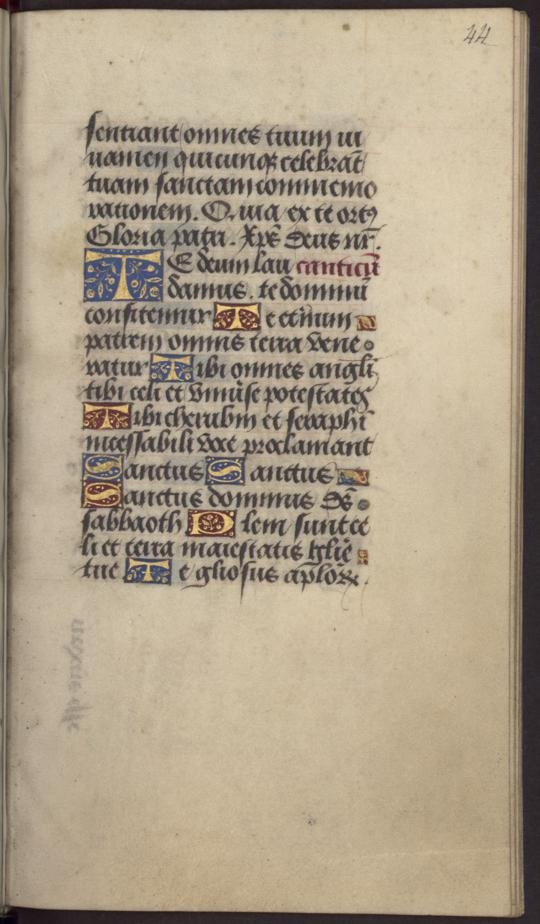 44
sentiant omnes tuum iu
uamen quicunqꝫ celebrāt
tuam sanctam commemo
rationem. O. uia ex te ortꝰ
Gloria patri. Xp̄s deus nr̄.
TE deum lau canticū
damus. te dominū
confitemur Te eternum
patrem omnis terra vene
ratur Tibi omnes angli
tibi celi et vniūse potestates
Tibi cherubin et seraphī
incessabili voce proclamant
Sanctus Sanctus
Sanctus dominus ds̄
sabbaoth Plem sunt ce
li et terra maiestatis glīe
tue Te gliosus aplōꝝ.